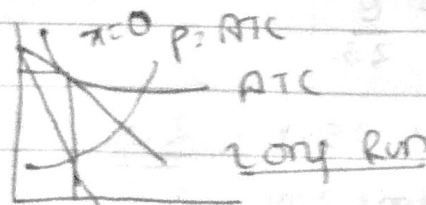 π=0 P=ATC
ATC
Long Run